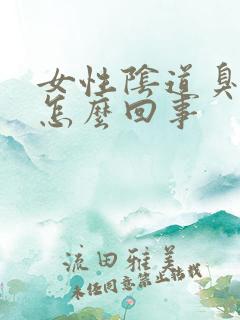 女性陰道臭
怎麼回事
流田雅美
未任同意禁止转載